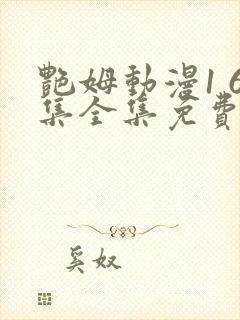 艷姆動漫1 6
集全集免費
奚奴